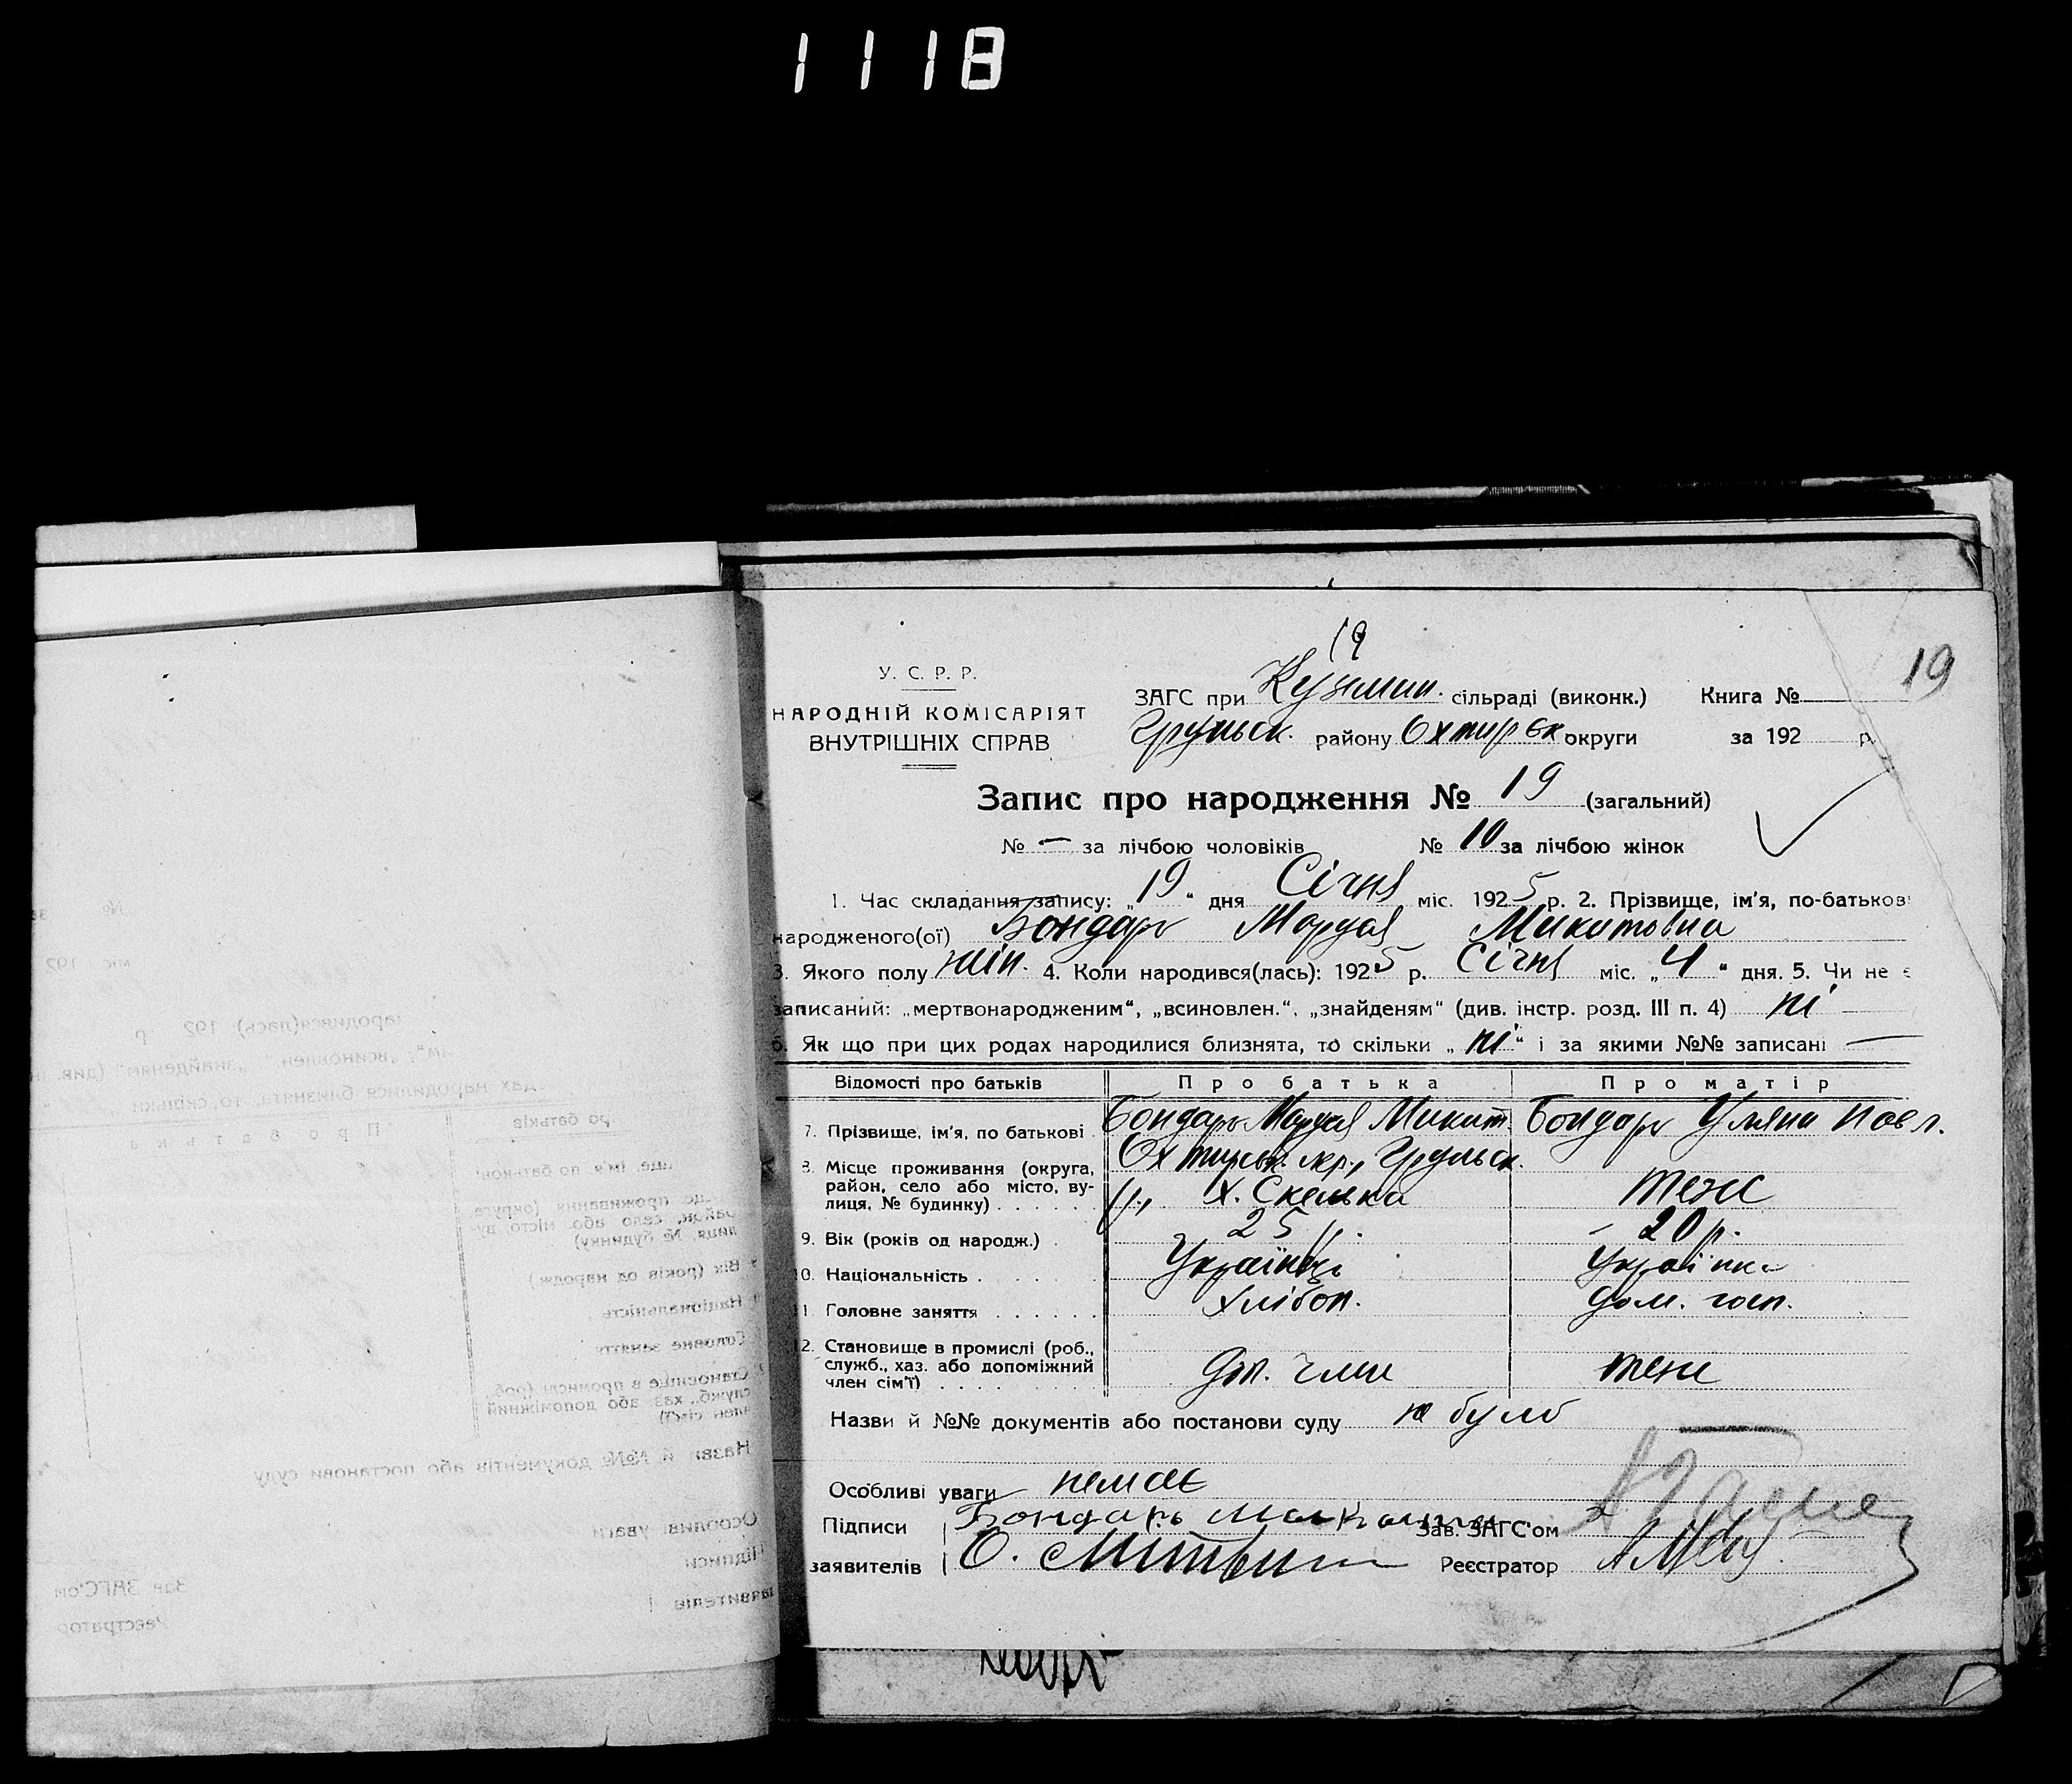 1118
19
19
У. С. Р. Р.
НАРОДНІЙ КОМІСАРІЯТ
ВНУТРІШНІХ СПРАВ
ЗАГС при Кузмин. сільраді (виконк.) Книга №
Груньск. району Охтирск округи за 192 р.
Запис про народження № 19 (загальний)
№ — за лічбою чоловіків № 10 за лічбою жінок
1. Час складання запису: „19“ дня Січня міс. 1925 р. 2. Прізвище, ім'я, по-батькові
народженого(ої) Бондарь Маруся Микитовна
3. Якого полу жін. 4. Коли народився(лась): 1925 р. Січня міс. „4“ дня. 5. Чи не є
записаний: „мертвонародженим“, „всиновлен.“, „знайденям“ (див. інстр. розд. III п. 4) ні —
6. Як що при цих родах народилися близнята, то скільки „ні“ і за якими №№ записані —
Відомості про батьків Про батька Про матір
7. Прізвище, ім'я, по батькові Бондарь Маруся Микит Бондарь Уляна Павл.
8. Місце проживання (округа, район, село або місто, вулиця, № будинку) Охтирськ. окр., Груньск. р., х. Скелька теж
9. Вік (років од народж.) 25 р. 20 р.
10. Національність Українець Українка
11. Головне заняття Хлібоп. Дом. госп.
12. Становище в промислі (роб., служб., хаз. або допоміжний член сім'ї) Доп. член теж
Назви й №№ документів або постанови суду не було
Особливі уваги немає
Підписи Бондарь Зав. ЗАГС'ом
заявителів О. Реєстратор